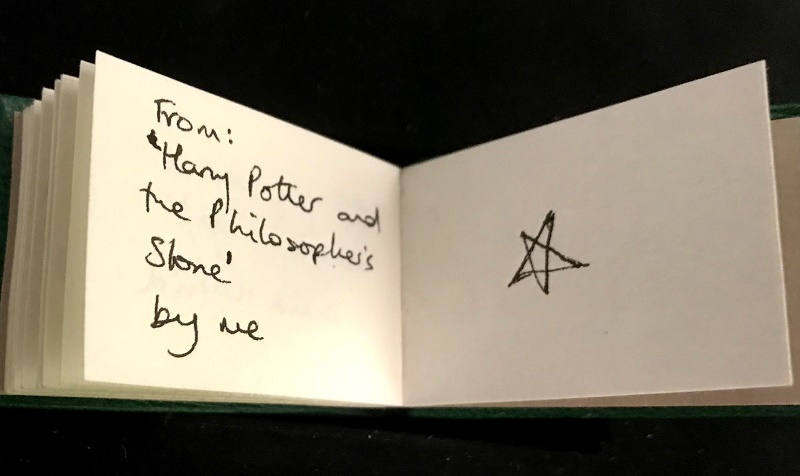 From:
'Harry Potter and
the Philosopher's
Stone'
by me